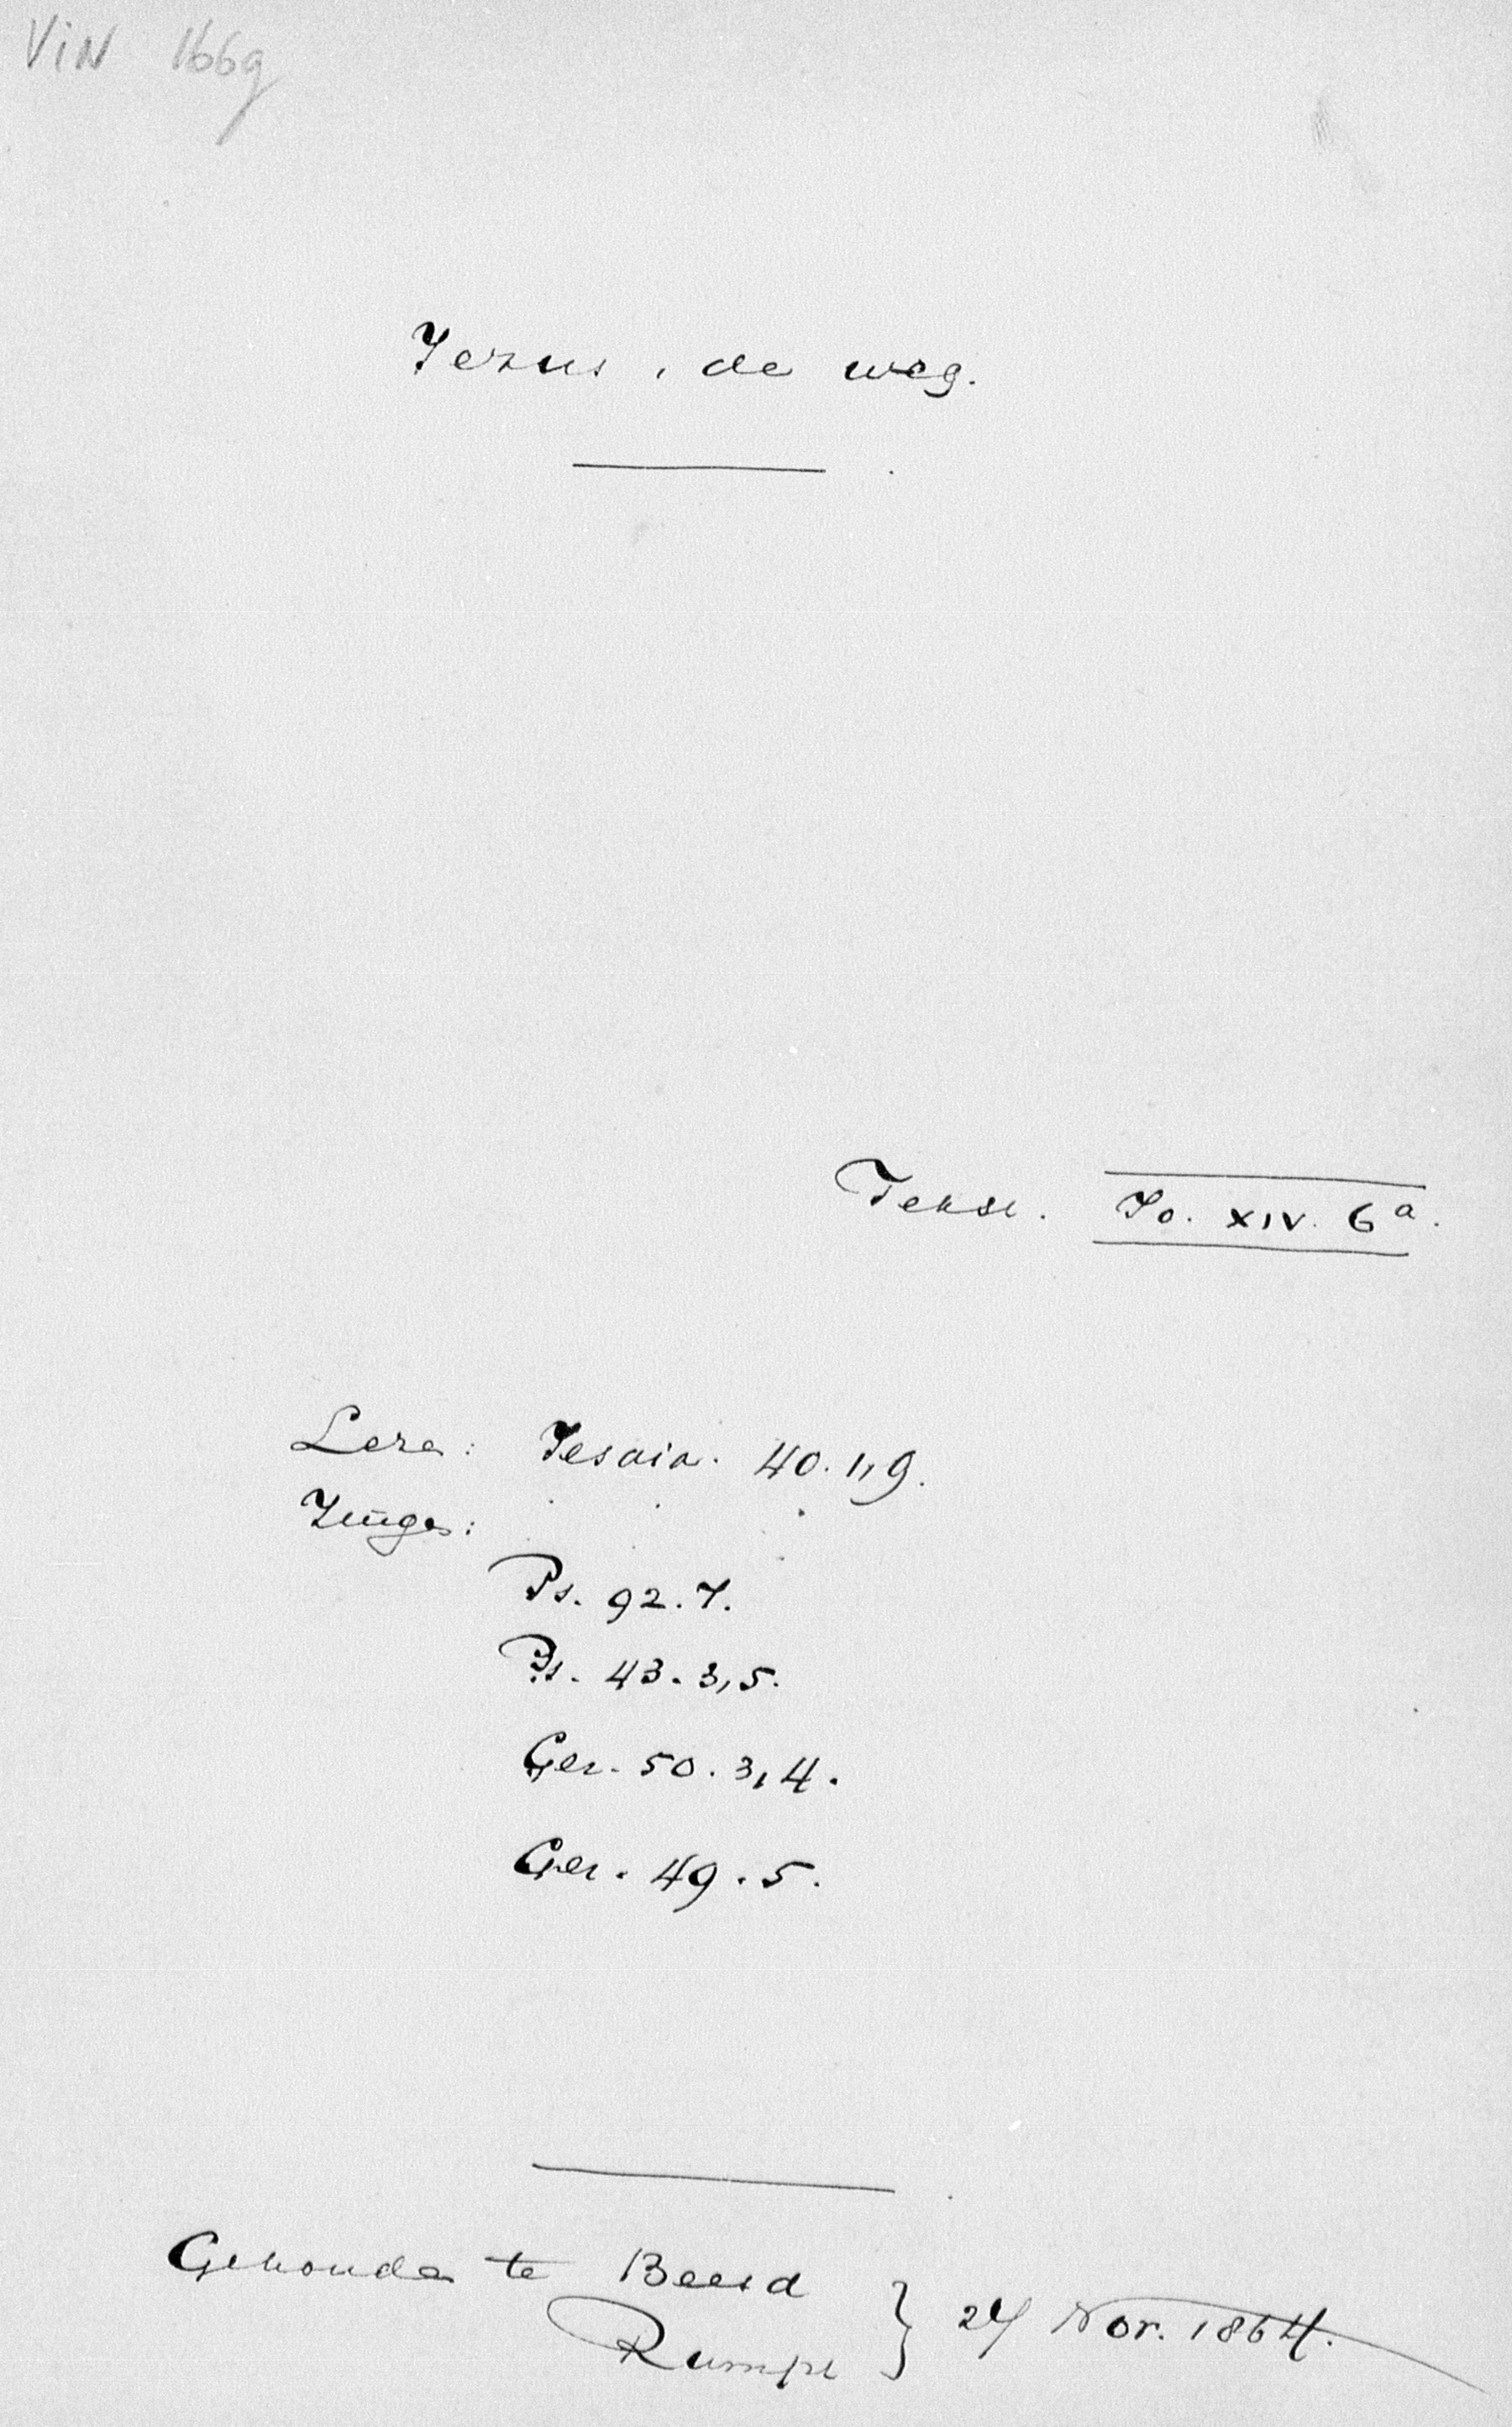 ViN 166g
Jezus, de weg.
Tekst. Jo. XIV. 6a.
Leze: Jesaia. 40. 1,9.
Zinge:
Ps. 92. 7.
Ps. 43. 3,5.
Gez. 50. 3,4.
Gez. 49. 5.
Gehouden te Beesd
Rumpt } 27 Nov. 1864.